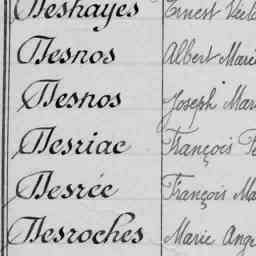 Deshayes Ernest
Desnos Albert Marie
Desnos Joseph Mar
Desriac François
Desrée François Ma
Desroches Marie Ang